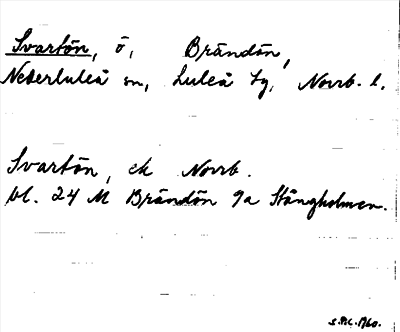 Svartön, ö, Brändön,
Nederluleå sn, Luleå tg, Norrb. l.
Svartön, ek Norrb.
bl. 24 M Brändön 9a Stångholmen.